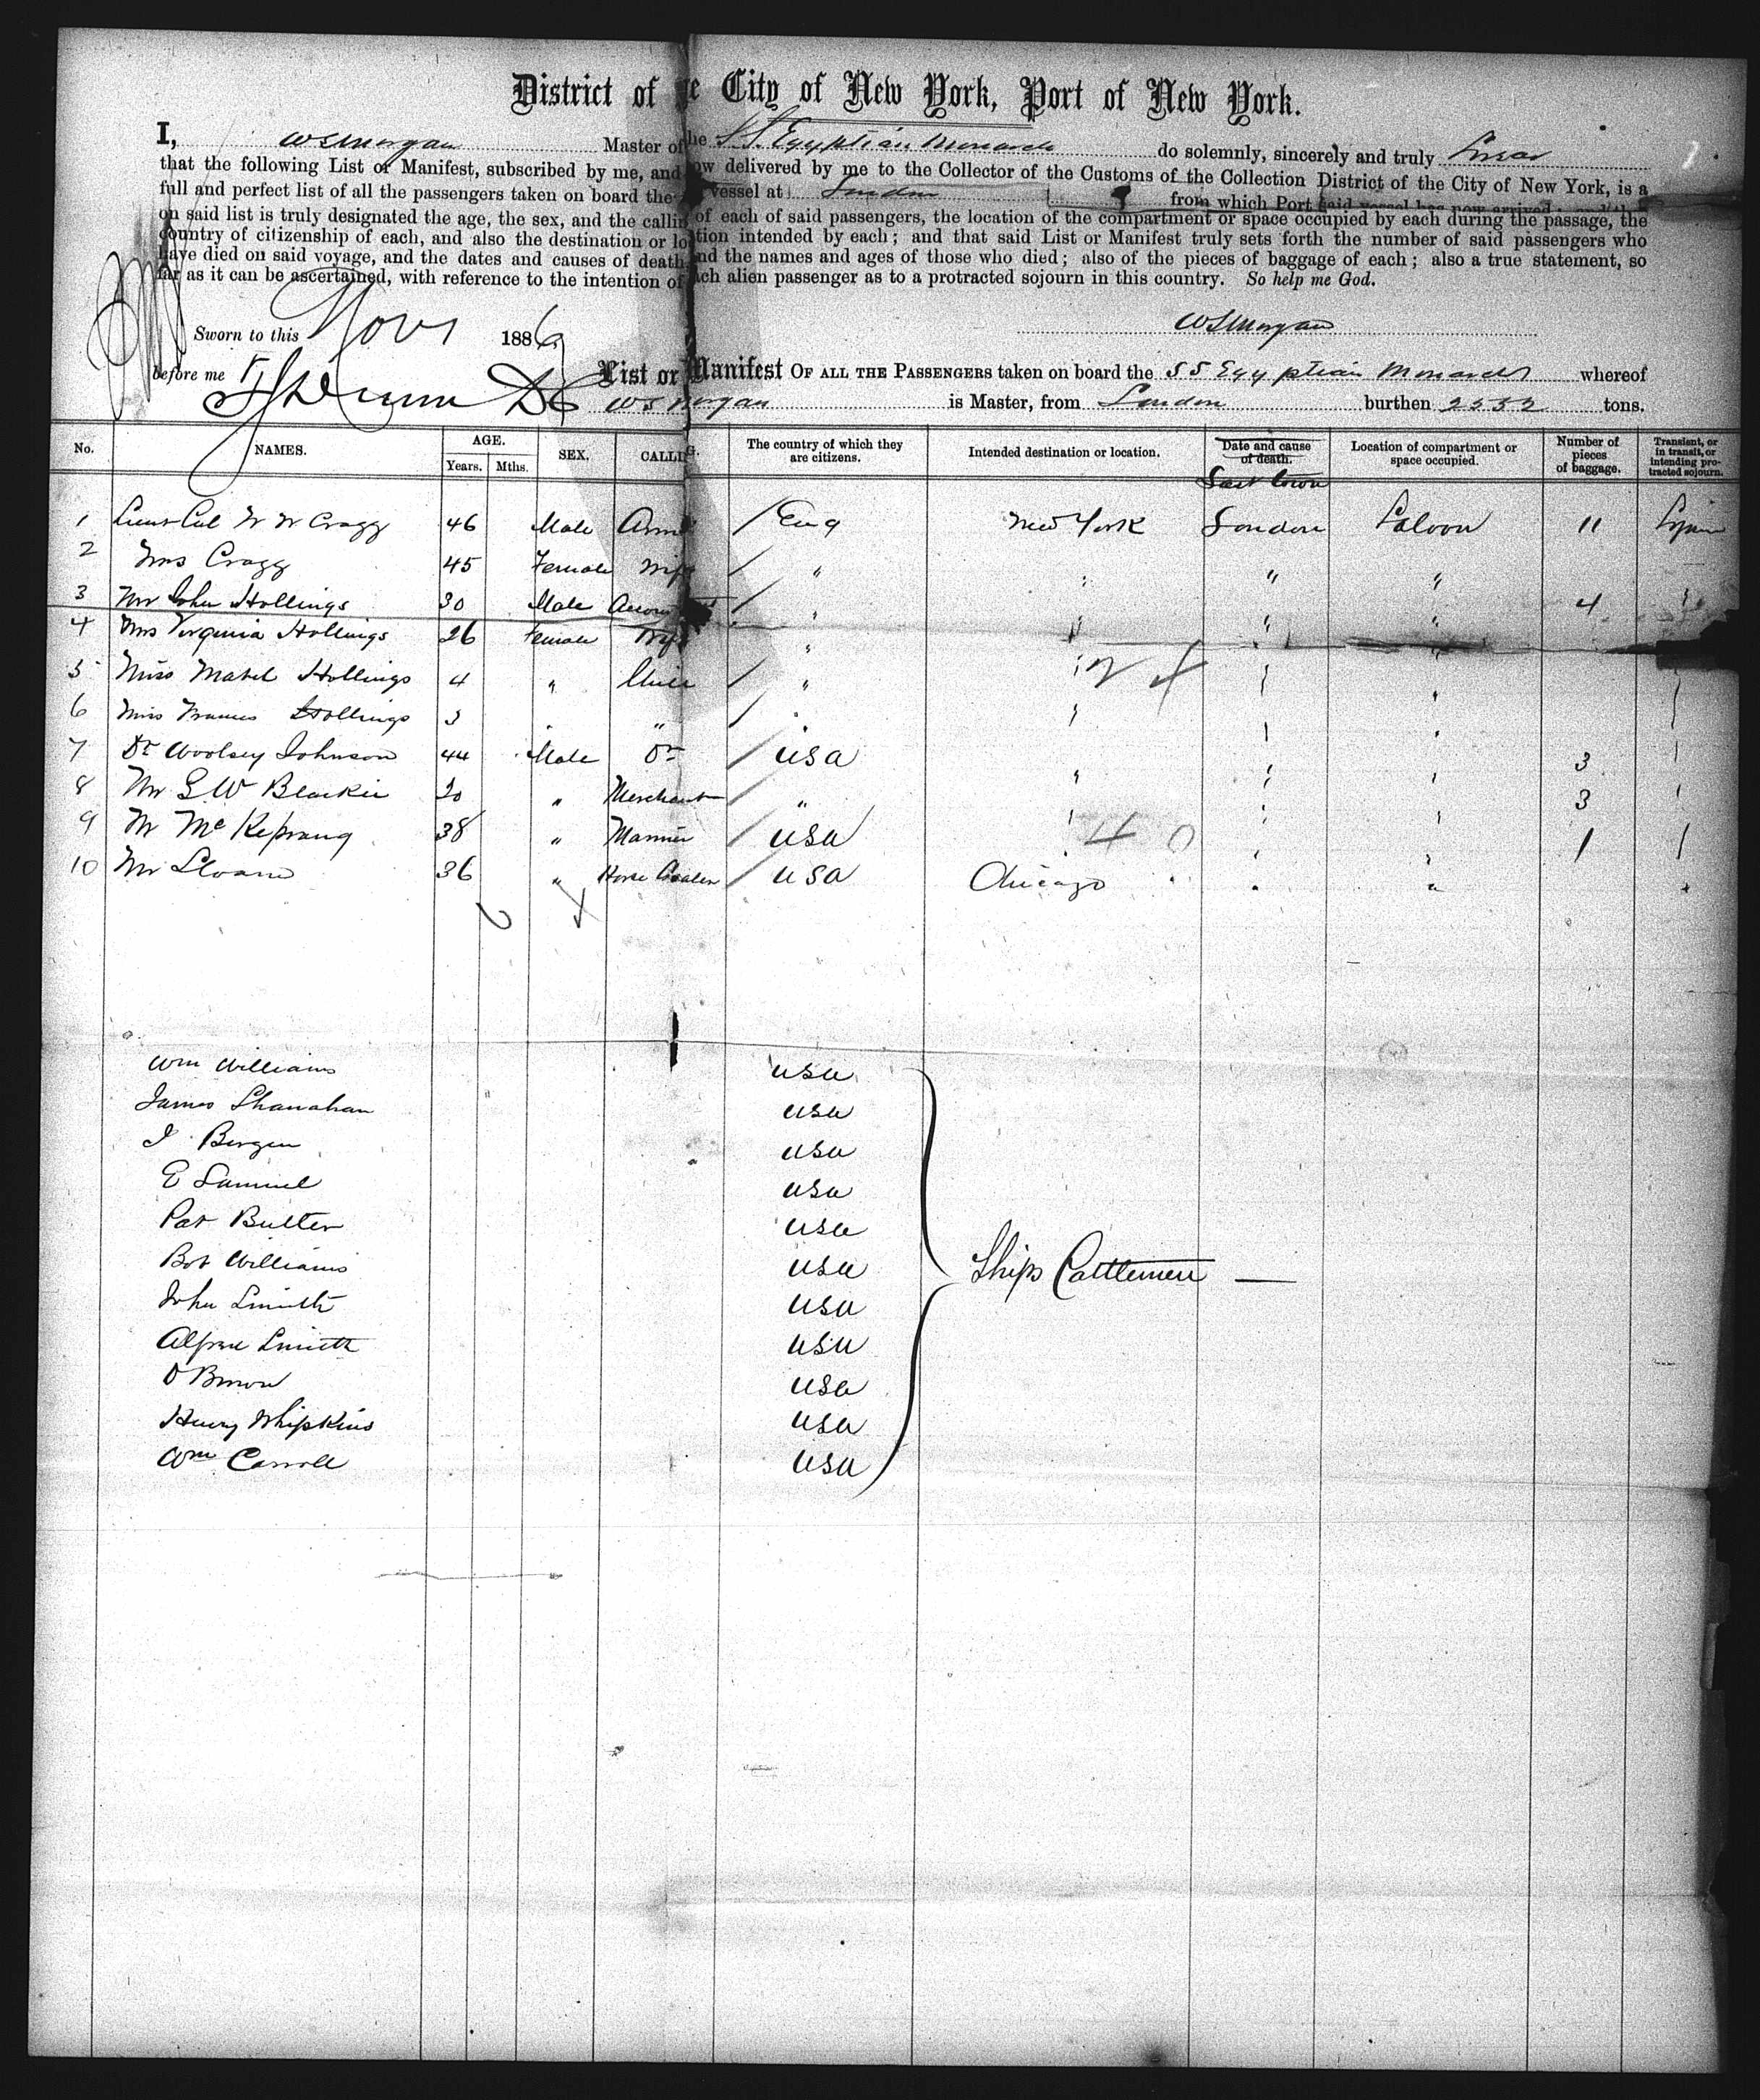 District of the City of New York, Port of New York.
I, W S Morgan Master of the S.S. Egyptian Monarch do solemnly, sincerely and truly Swear
that the following List or Manifest, subscribed by me, and now delivered by me to the Collector of the Customs of the Collection District of the City of New York, is a
full and perfect list of all the passengers taken on board the vessel at London from which Port said vessel has now arrived;
on said list is truly designated the age, the sex, and the calling of each of said passengers, the location of the compartment or space occupied by each during the passage, the
country of citizenship of each, and also the destination or location intended by each; and that said List or Manifest truly sets forth the number of said passengers who
have died on said voyage, and the dates and causes of death and the names and ages of those who died; also of the pieces of baggage of each; also a true statement, so
far as it can be ascertained, with reference to the intention of each alien passenger as to a protracted sojourn in this country. So help me God.
Sworn to this Nov 1 1886
W S Morgan
before me
List or Manifest OF ALL THE PASSENGERS taken on board the S S Egyptian Monarch whereof
W S Morgan is Master, from London burthen 2552 tons.
No. NAMES. AGE. Years. Mths. SEX. CALLING. The country of which they are citizens. Intended destination or location. Date and cause of death. Location of compartment or space occupied. Number of pieces of baggage. Transient, or in transit, or intending protracted sojourn.
Last town
1 Lieut Col W W Cragg 46 Male Army / Eng New York London Saloon 11
2 Mrs Cragg 45 Female Wife / " " " "
3 Mr John Hollings 30 Male / " " " " 4
4 Mrs Virginia Hollings 26 Female Wife " " " "
5 Miss Mabel Hollings 4 " Child / " 2 4
6 Miss Frances Hollings 3 " " /
7 Dr Woolsey Johnson 44 Male Dr / USA 3
8 Mr G W Blackie 20 " Merchant / " " 3
9 Mr 38 " Mariner / USA 40 1
10 Mr Sloane 36 " Horse Dealer / USA Chicago " "
Wm Williams USA
James Shanahan USA
J Bergen USA
E Samuel USA
Pat Butler USA
Bob Williams USA
Ships Cattlemen —
John Smith USA
Alfred Smith USA
D Brown USA
Henry Whipkins USA
Wm Carroll USA